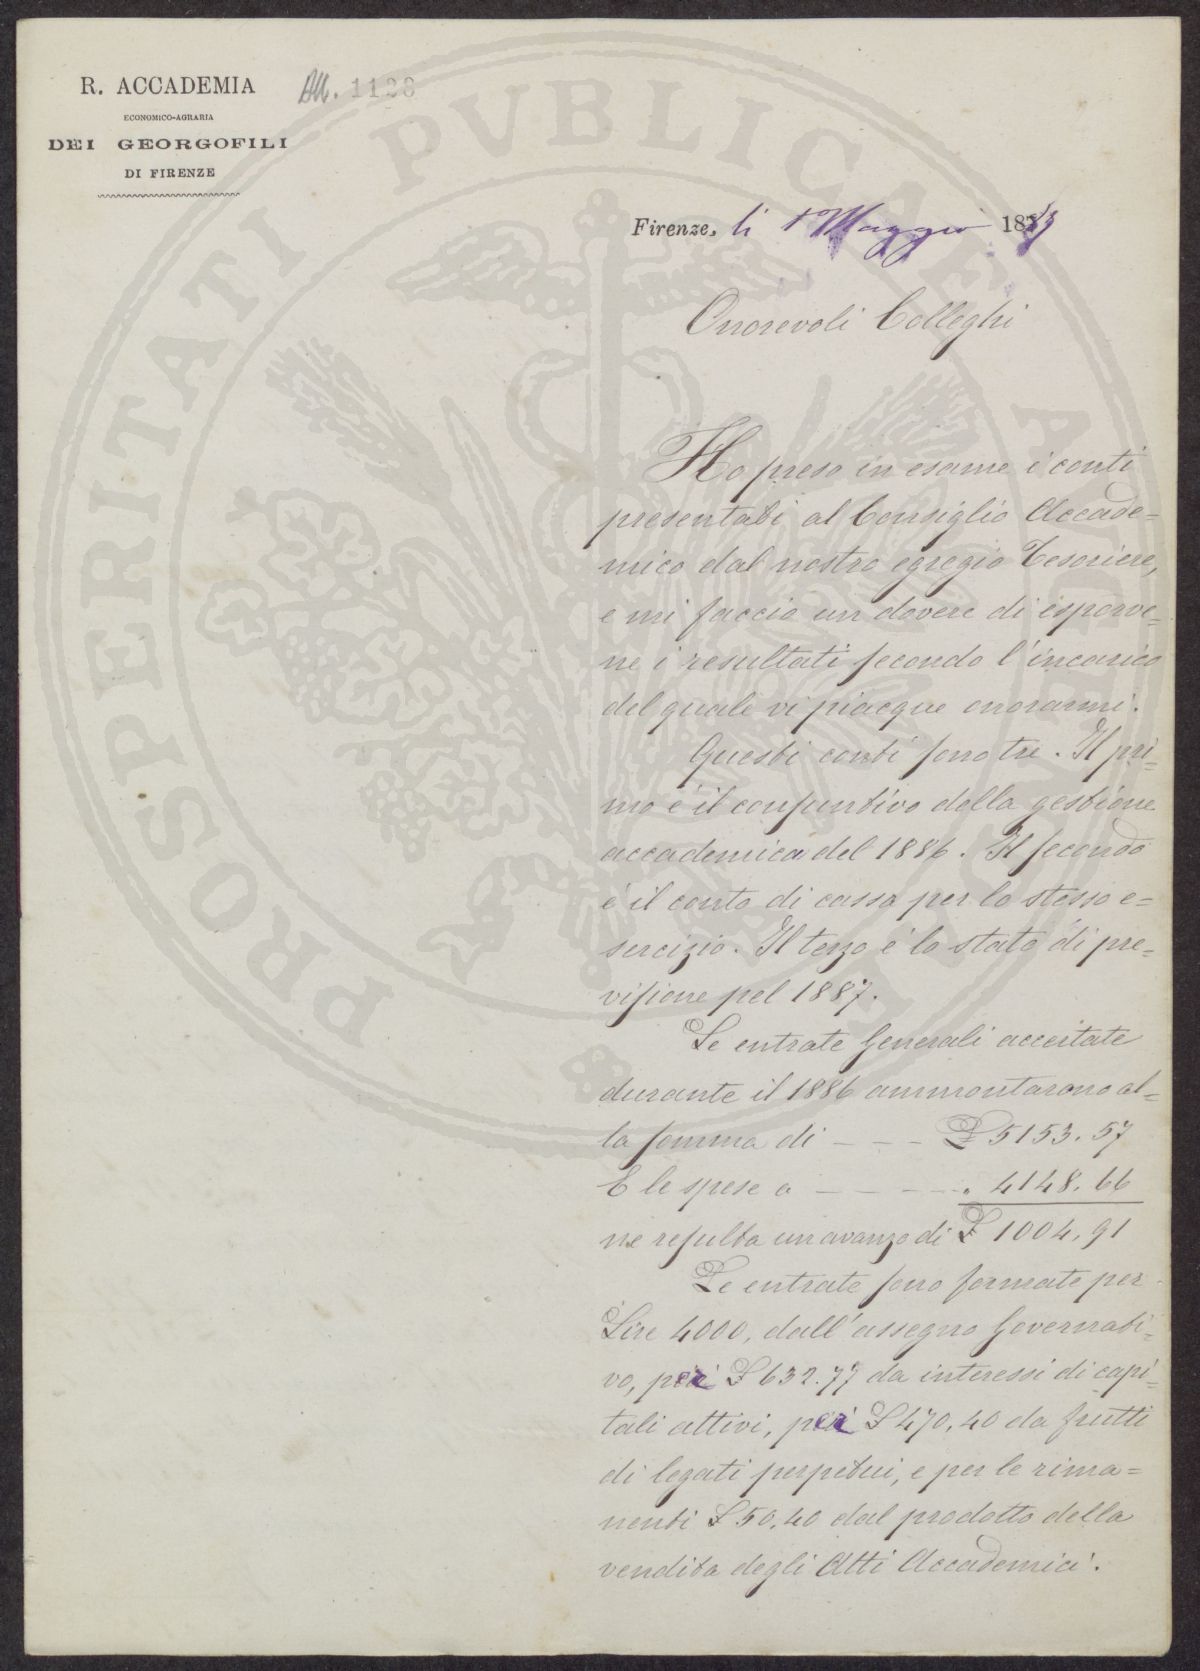 R. ACCADEMIA
ECONOMICO-AGRARIA
DEI GEORGOFILI
DI FIRENZE
1128
PROSPERITATI PVBLICAE AVGENDAE
Firenze, li 1 Maggio 188
Onorevoli Colleghi
Ho preso in esame i conti
presentati al Consiglio Accade=
mico dal nostro egregio Tesoriere,
e mi faccio un dovere di esporve=
ne i resultati secondo l'incarico
del quale vi piacque onorarmi.
Questi conti sono tre. Il pri=
mo è il consuntivo della gestione
accademica del 1886. Il secondo
è il conto di cassa per lo stesso e=
sercizio. Il terzo è lo stato di pre=
visione pel 1887.
Le entrate Generali accertate
durante il 1886 ammontarono al=
la somma di - - - £ 5153.57
E le spese a - - - - - „ 4148.66
ne resulta un avanzo di £ 1004,91
Le entrate sono formate per
Lire 4000, dall'assegno Governati=
vo, per £ 632.77 da interessi di capi=
tali attivi, per £ 470,40 da frutti
di legati perpetui, e per le rima=
nenti £ 50.40 dal prodotto della
vendita degli Atti Accademici.